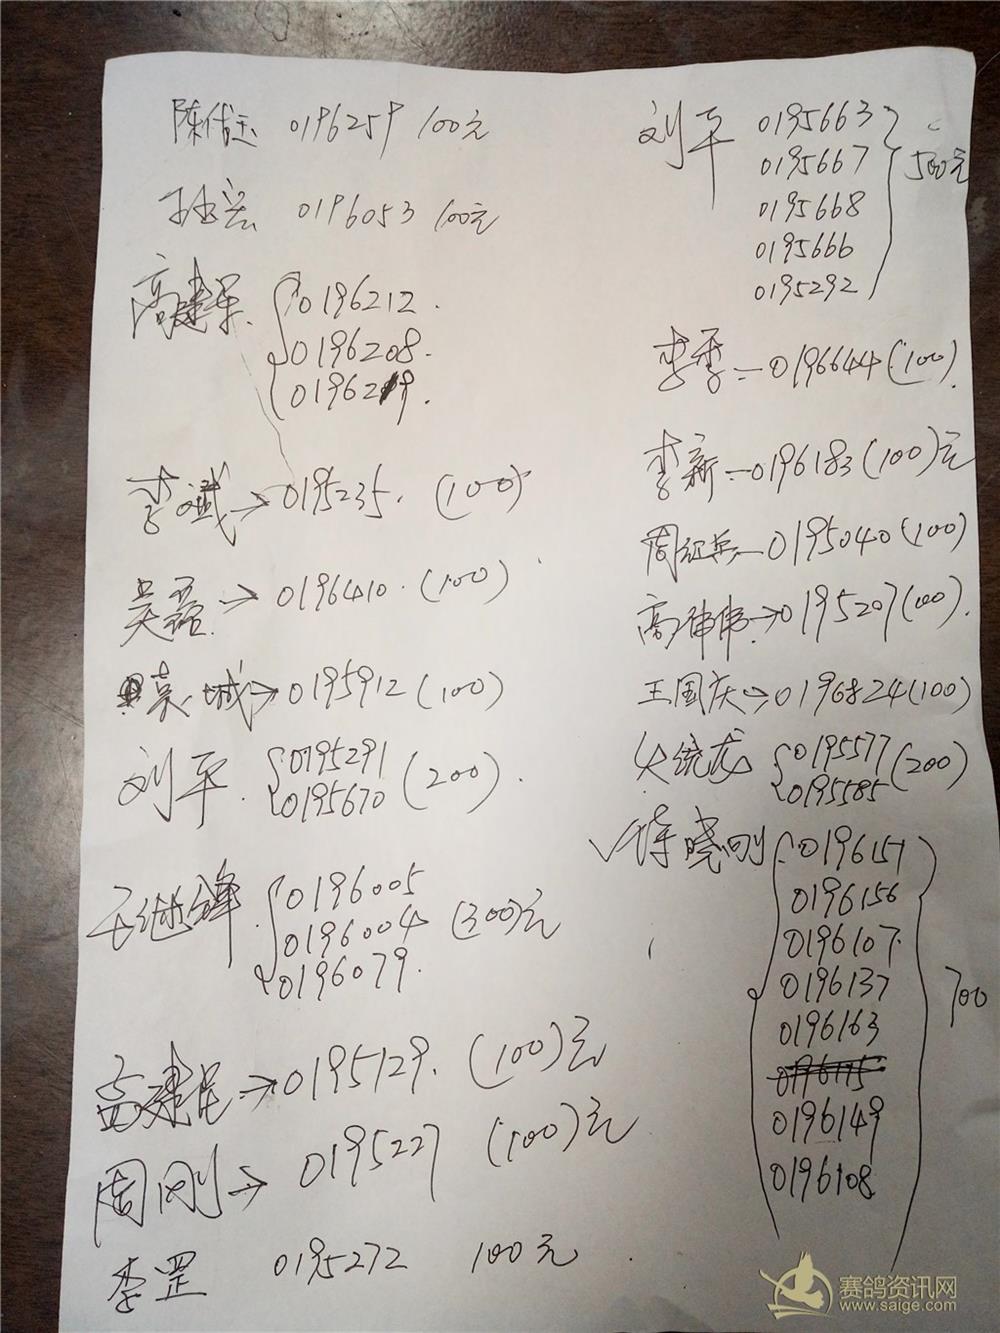 0196259 100元
0196053 100元
高建军 0196212.
0196208.
019629.
李斌→0195235. (100)
吴磊→0196410. (100)
→0195912 (100)
刘平 0195291
0195670 (200).
王继锋 0196005
0196004 (300)元
0196079.
高建民→0195129. (100)元
周刚→0195227 (100)元
李罡 0195272 100元
刘平 0195663
0195667 500元
0195668
0195666
0195292
李季—0196644(100).
李新—0196183(100)元
周红兵—0195040(100)
高伟→0195207(100).
王国庆→0196824(100)
0195577
0195585 (200)
√ 晓刚 0196157
0196156
0196107.
0196137 700
0196163
0196149
0196108
赛鸽资讯网
www.saige.com